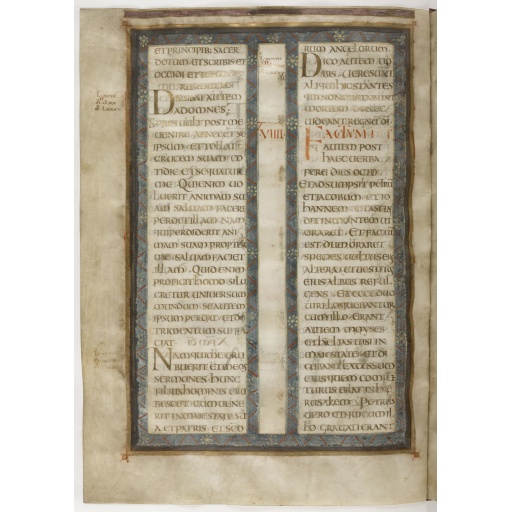 ET PRINCIPIB; SACER
DOTUM ET SCRIBIS ET
OCCIDI ET
DICEBAT AUTEM
AD OMNES;
SI QUIS UULT POST ME
UENIRE ABNEGET SE
IPSUM ET TOLLAT
CRUCEM SUAM CO
TIDIE ET SEQUATUR
ME QUI ENIM UO
LUERIT ANIMAM SU
AM SALUAM FACERE
PERDET ILLAM NAM
QUI PERDIDERIT ANI
MAM SUAM PROPTER
ME SALUAM FACIET
ILLAM QUID ENIM
PROFICIT HOMO SI LU
CRETUR UNIUERSUM
MUNDUM SE AUTEM
IPSUM PERDAT ET DE
TRIMENTUM SUI FA
CIAT
NAM QUI ME ERU
BUERIT ET MEOS
SERMONES HUNC
FILIUS HOMINIS ERU
BESCET CUM UENE
RIT IN MAIESTATE SU
A ET PATRIS ET SCO
VIIII
RUM ANGELORUM
DICO AUTEM UO
BIS UERE SUNT
ALIQUI HIC STANTES
QUI NON GUSTABUNT
MORTEM DONEC
UIDEANT REGNU DI
FACTUM
AUTEM POST
HAEC UERBA
FERE DIES OCTO
ET ADSUMPSIT PETRU
ET IACOBUM ET IO
HANNEM ET ASCEN
DIT IN MONTEM UT
ORARET ET FACTA
EST DUM ORARET
SPECIES UULTUS EI
ALTERA ET UESTITUS
EIUS ALBUS REFUL
GENS ET ECCE DUO
UIRI LOQUEBANTUR
CUM ILLO ERANT
AUTEM MOYSES
ET HELIAS UISI IN
MAIESTATE ET DI
CEBANT EXCESSUM
EIUS QUEM COMPLE
TURUS ERAT IN HIE
RUSALEM PETRUS
UERO ET QUI CUM IL
LO GRAUATI ERANT